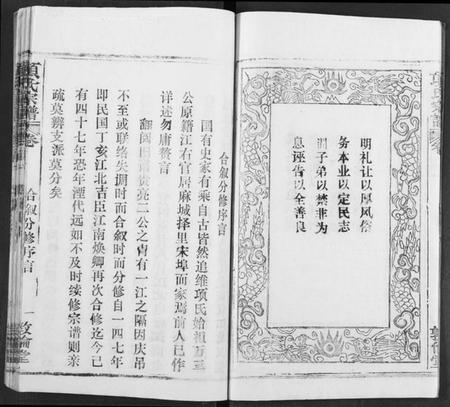 明礼让以厚风俗
务本业以定民志
训子弟以禁非为
息诬告以全善良
敦伦堂
合叙分修序言
国有史家有乘自古皆然追维项氏始祖万三
公原籍江右官居麻城择里宋埠而家焉前人已作
详述勿庸赘言
翻阅旧谱贵亮二公之裔有一江之隔因庆吊
不至或联络失调时而合叙时而分修自一九四七年
即民国丁亥江北吉臣江南焕卿再次合修迄今已
有四十七年恐年湮代远如不及时续修宗谱则亲
疏莫辨支派莫分矣
项氏宗谱
卷
合叙分修序言
一
敦伦堂